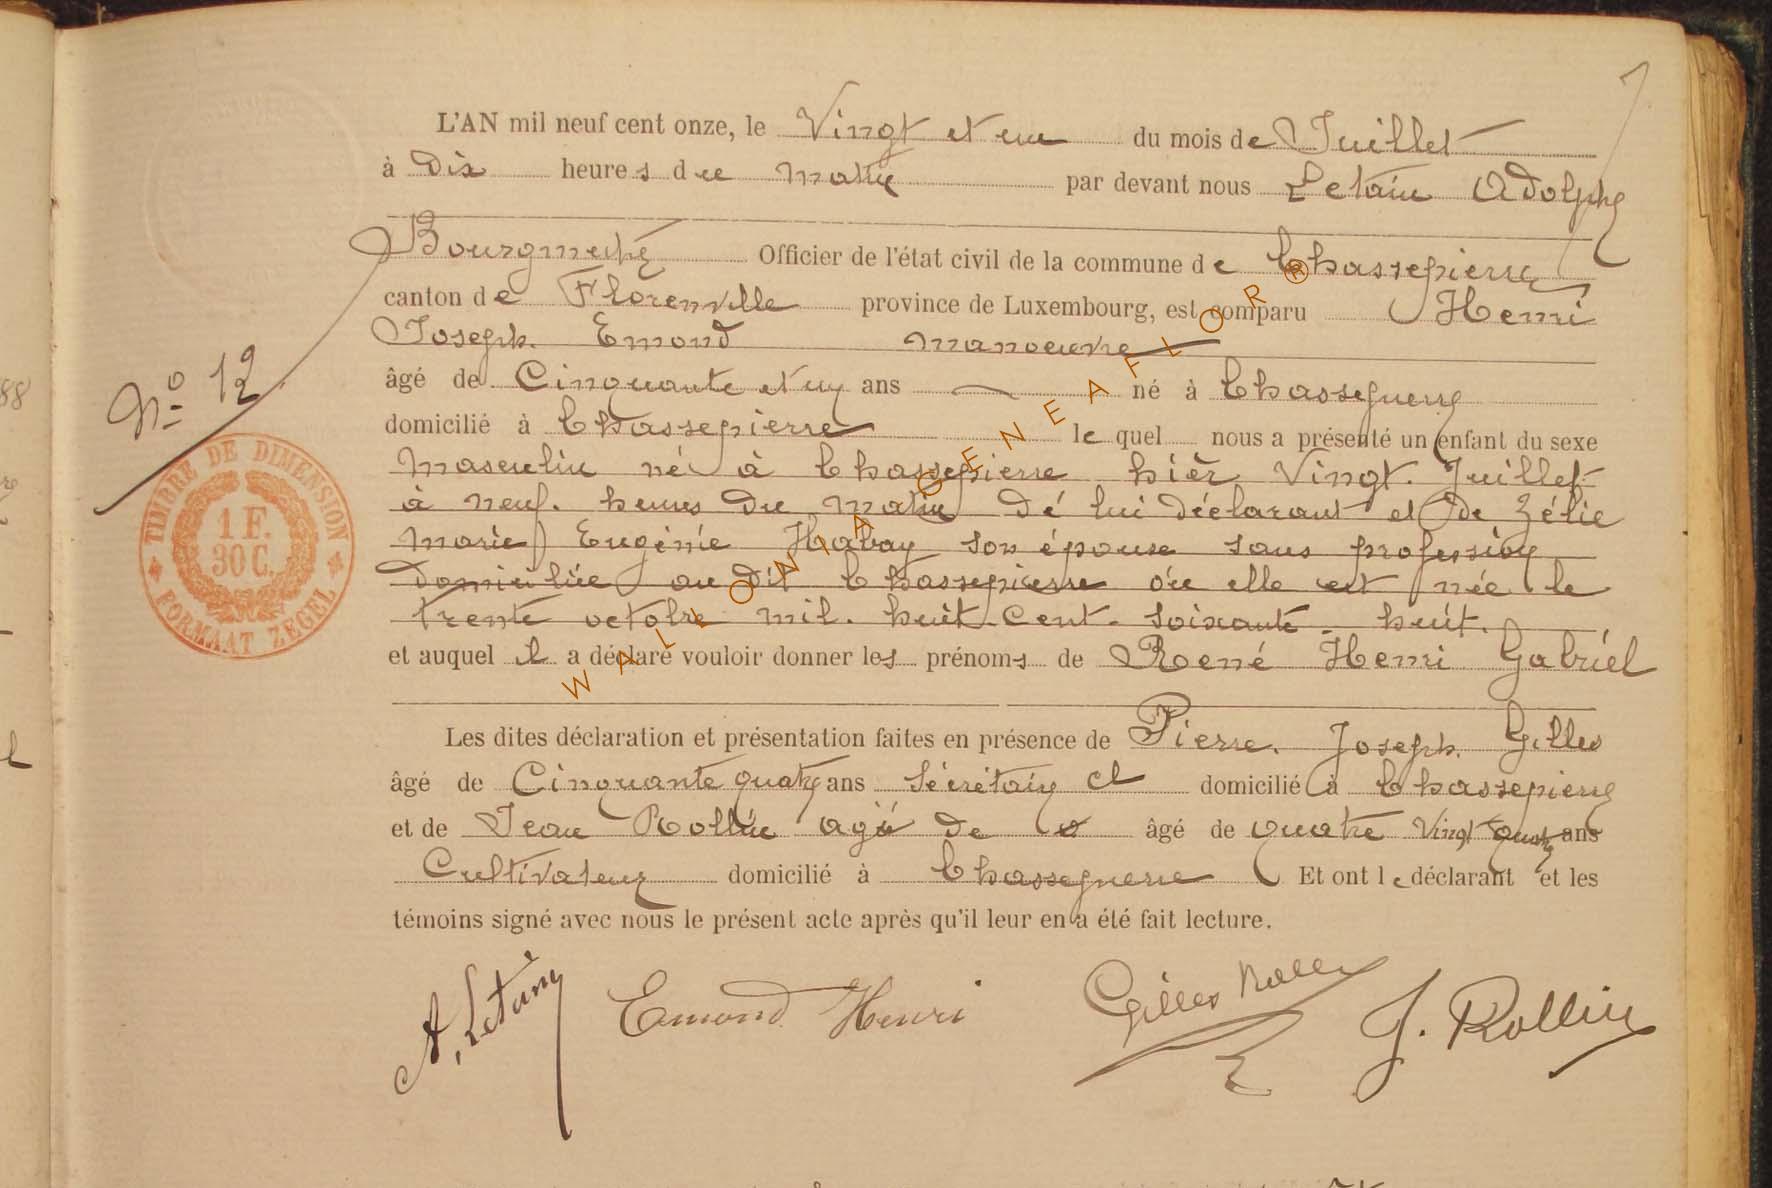 L'AN mil neuf cent onze, le Vingt et un du mois de Juillet
à Dix heures du matin par devant nous Letain Adolphe
Bourgmestre Officier de l'état civil de la commune de Chassepierre
canton de Florenville province de Luxembourg, est comparu Henri
Joseph. Emond manoeuvre
âgé de Cinquante et un ans né à Chassepierre
domicilié à Chassepierre lequel nous a présenté un enfant du sexe
masculin né à Chassepierre hier Vingt. Juillet
à neuf. heures du matin dé lui déclarant et de Zélie
Marie Eugénie Habay son épouse sans profession
domiciliée au dit Chassepierre où elle est née le
trente octobre mil. huit. Cent. soixante - huit.
et auquel il a déclaré vouloir donner les prénoms de René Henri Gabriël
Les dites déclaration et présentation faites en présence de Pierre. Joseph. Gilles
âgé de Cinquante quatre ans Sécrétaire cl domicilié à Chassepierre
et de Jean Rollin agé de âgé de quatre Vingt quatre ans
Cultivateur domicilié à Chassepierre Et ont le déclarant et les
témoins signé avec nous le présent acte après qu'il leur en a été fait lecture.
A. Letain Emond Henri Gilles J. Rollin
N° 12
TIMBRE DE DIMENSION
1 F.
30 C.
FORMAAT ZEGEL
88
WALLONIA GENEAFLOR ®